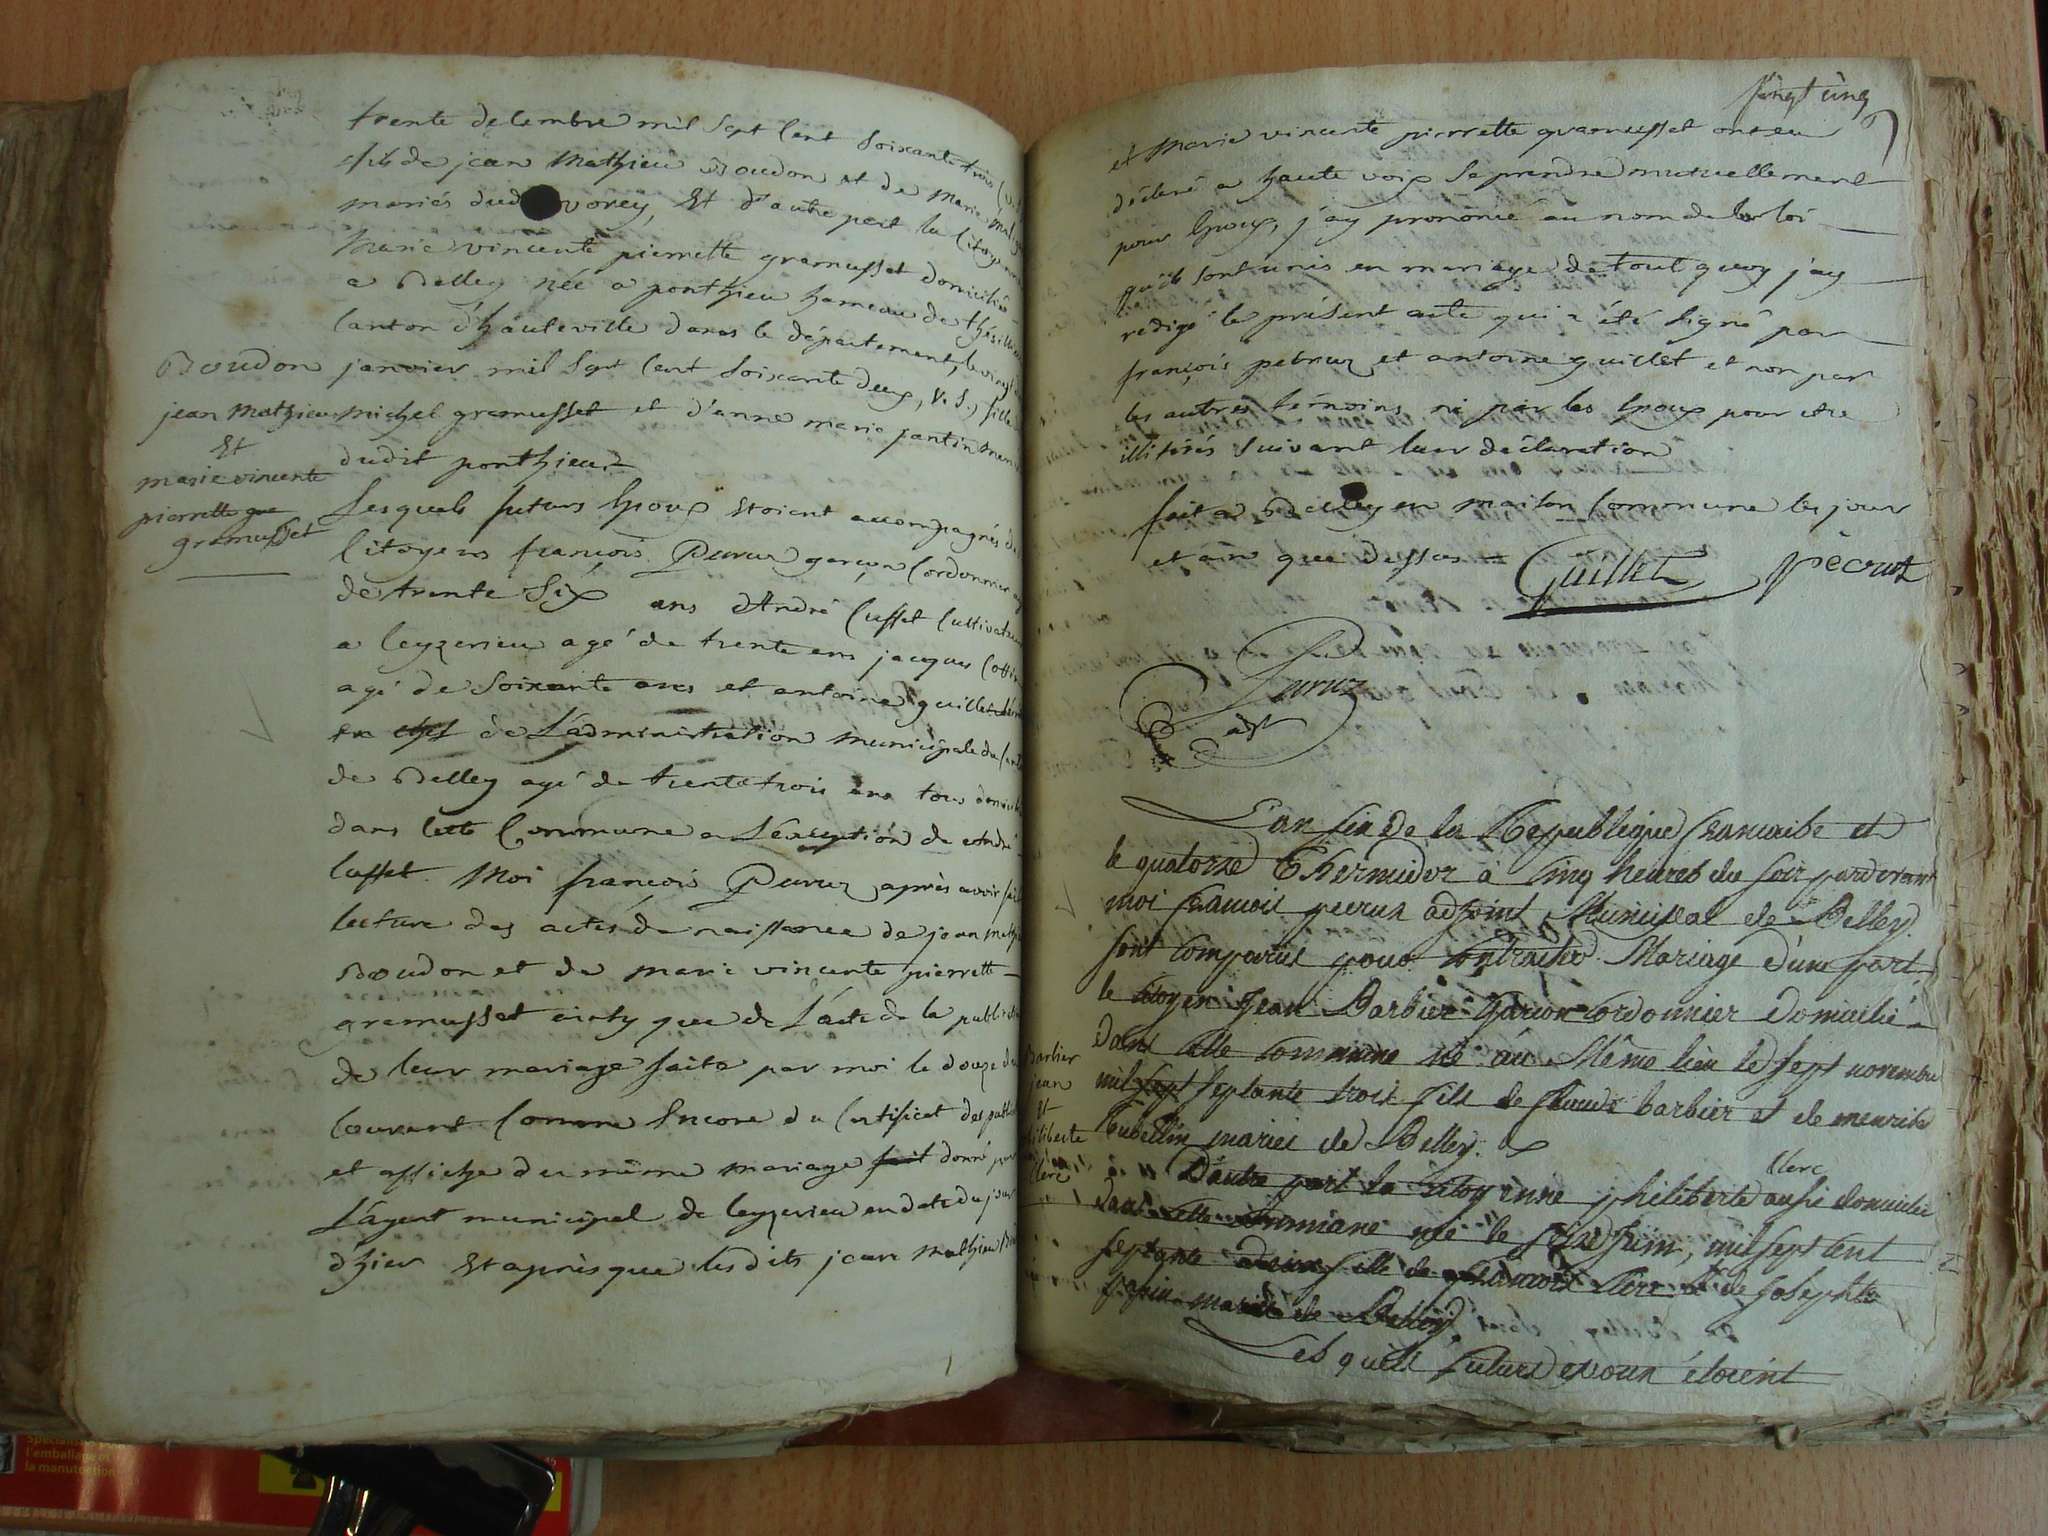 trente decembre mil sept cent soixante trois
fils de jean mathieu Boudon et de marie
mariés dud vorey, Et d'autre part la Citoyenne
marie vincente pierrette gramusset domiciliée
a Belley née a ponthieu hameau de
Canton d'hauteville dans le département, le vingt
janvier mil sept cent soixante deux, V. S., fille
michel gramusset et d'anne marie jantin
dudit ponthieu
Boudon
jean mathieu
Et
marie vincente
pierrette gra
gramusset
Lesquels futurs Epoux Etoient accompagnés de
Citoyens françois garçon Cordonnier
de trente Six ans d'André Cusset Cultivateur
a Ceyzerieu agé de trente ans jacques
agé de soixante ans et antoine guillet
en chef de L'administration municipale du
de Belley agé de trente trois ans tous
dans cette Commune a L'exception de andré
Cusset. Moi françois après avoir fait
lecture des actes de naissance de jean
Boudon et de marie vincente pierrette
gramusset ainsy que de L'acte de la
de leur mariage faite par moi le douze du
Courant Comme Encore du Certificat des
et affiche du même mariage fait donné par
L'agent municipal de Ceyzerieu en date du jour
d'hier Et après que lesdits jean mathieu
vingt cinq
et Marie vincente pierrette gramusset ont eu
déclaré a haute voix Se prendre mutuellement
pour Epoux, j'ay prononcé au nom de la loi
qu'ils sont unis en mariage de tout quoy j'ay
redigé le présent acte qui a été signé par
françois pecruz et antoine guillet et non par
les autres témoins ni par les Epoux pour etre
illitérés suivant leur déclaration
fait a Belley en maison Commune les jour
et an que dessus
Guillet Pècruz
adt
L'an six de la Republique francaise et
le quatorze Thermidor à cinq heures du soir pardevant
moi francois pecrux adjoint Municipal de Belley
sont comparus pour contracter Mariage d'une part
le citoyen Jean Barbier Garcon cordonnier domicilié
dans cette commune né au Même lieu le sept novembre
mil sept septante trois fils de Claude barbier et de
mariés de Belley.
Barbier
jean
Et
philiberte
Clerc
D'autre part la citoyenne philiberte Clerc aussi domiciliée
dans cette commune née le seize juin, mil sept cent
septante deux fille de francois Clerc et de Josephte
papin mariés de Belley.
Lesquels futurs epoux étoient